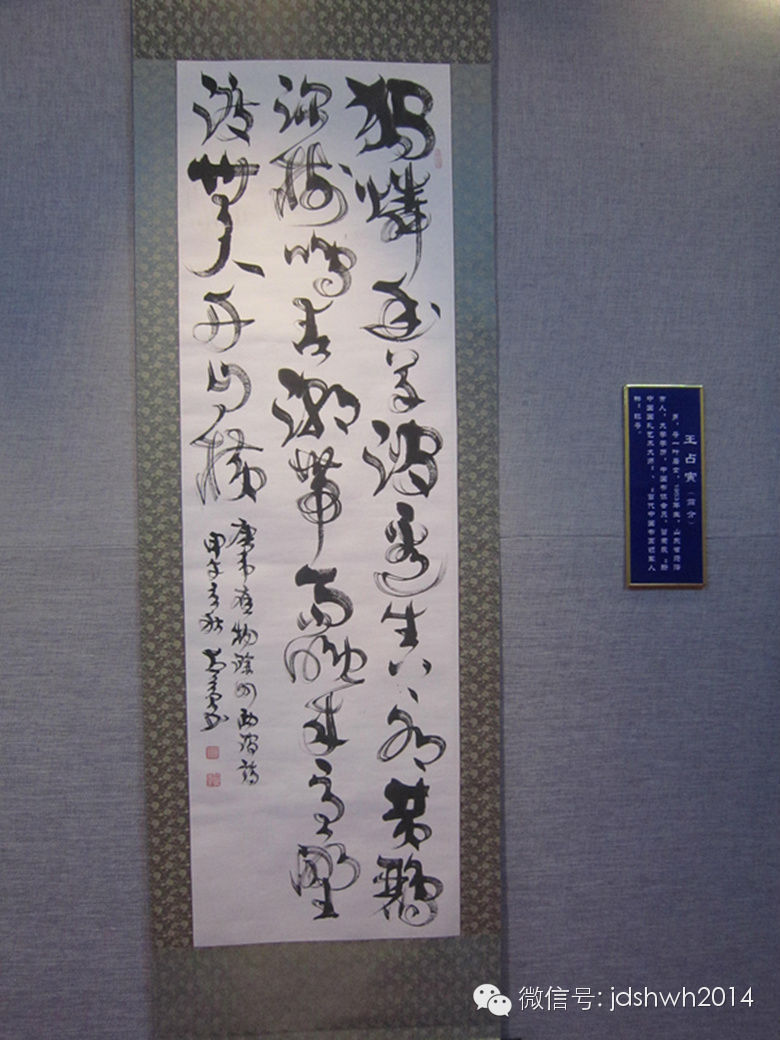 獨憐幽草澗邊生上有黄鸝
深樹鳴春潮帶雨晚來急野
渡無人舟自横
唐韦應物滁州西澗詩
甲午春秋 占寅书
王占寅（简介）
男，号一叶居士，1953年生，山东省
市人，大学学历，中国书协会员，曾荣获“
中国国礼艺术大师”、“当代中国书画领军人
物”称号。
微信号: jdshwh2014